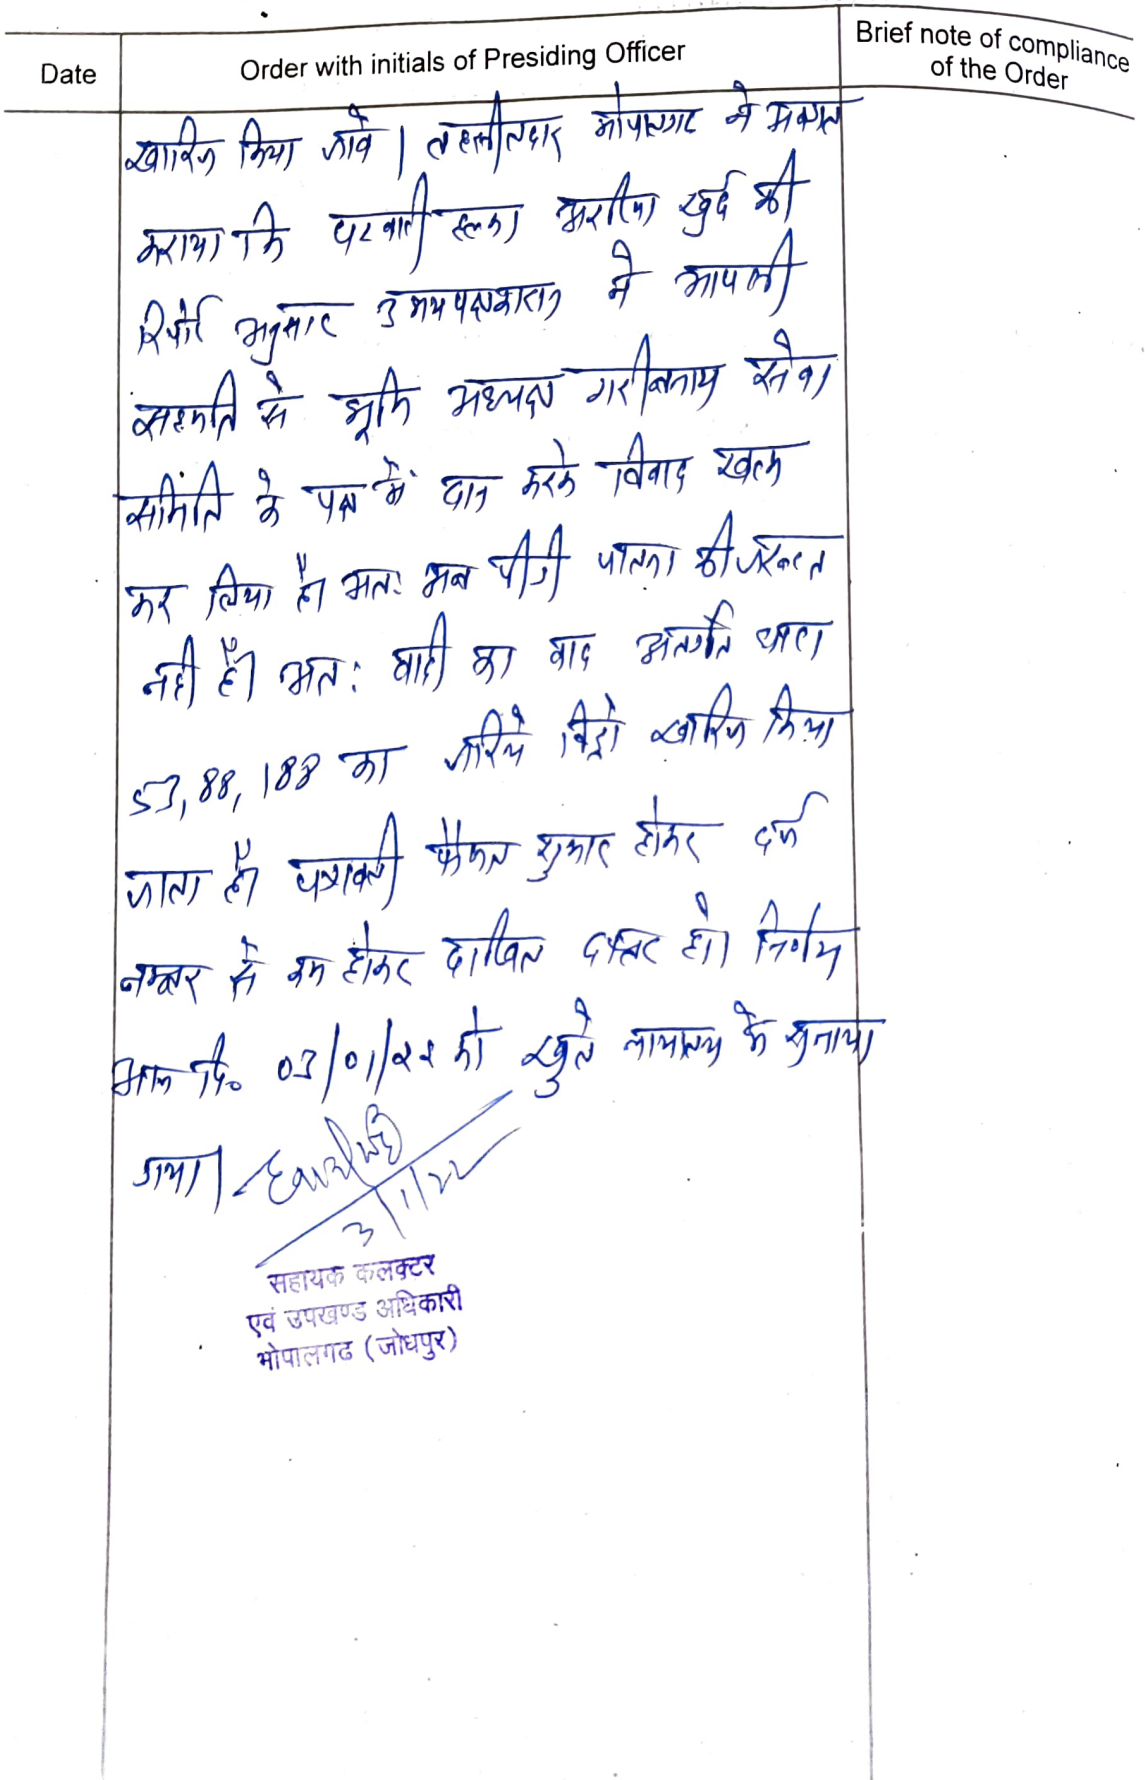 Date
Order with initials of Presiding Officer
Brief note of compliance
of the Order
खारिज किया जावे। तहसीलदार भोपालगढ ने अवगत
कराया कि पटवारी हल्का खुर्द की
रिपोर्ट अनुसार उभयपक्षकारान ने आपसी
सहमति से भूमि अध्यक्ष गरीबनाथ सेवा
समिति के पक्ष में दान करके विवाद खत्म
कर लिया है। अतः अब पालना की जरूरत
नही है। अतः वादी का वाद अंतर्गत धारा
53,88,188 का जरिये विड्रो खारिज किया
जाता है। पत्रावली फैसल शुमार होकर दर्ज
नम्बर से कम होकर दाखिल दफ्तर हो। निर्णय
आज दि० 03/01/22 को खुले न्यायालय मे सुनाया
गया।
3/1/22
सहायक कलक्टर
एवं उपखण्ड अधिकारी
भोपालगढ (जोधपुर)